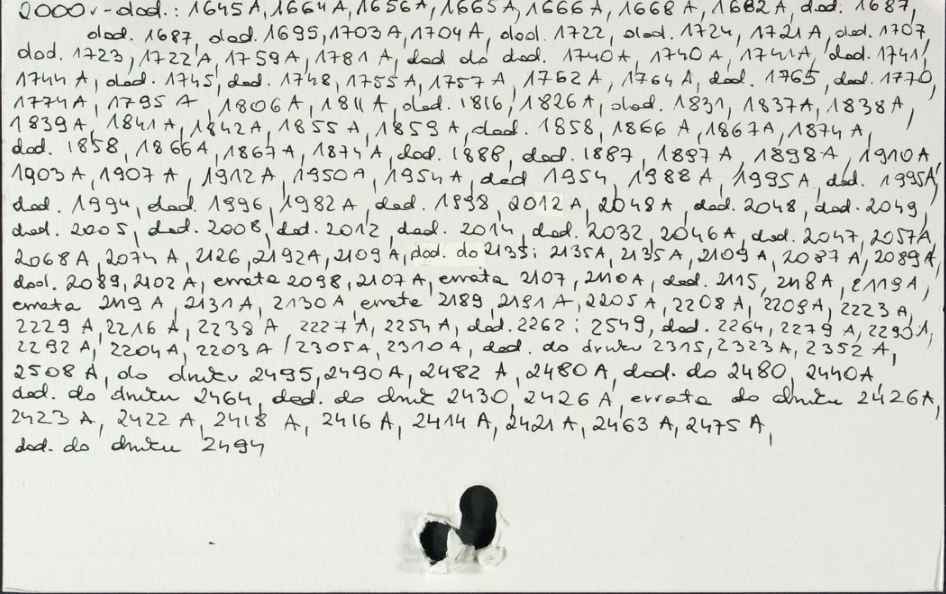 2000r - dod.: 1645 A, 1664 A, 1656 A, 1665 A, 1666 A, 1668 A, 1682 A, dod. 1687,
dod. 1687, dod. 1695, 1703 A, 1704 A, dod. 1722, dod. 1724, 1721 A, dod. 1707
dod. 1723, 1722 A, 1759 A, 1781 A, dod do dod. 1740 A, 1740 A, 1741 A, dod. 1741,
1744 A, dod. 1745, dod. 1748, 1755 A, 1757 A, 1762 A, 1764 A, dod. 1765, dod. 1770,
1774 A, 1795 A, 1806 A, 1811 A, dod. 1816, 1826 A, dod. 1831, 1837 A, 1838 A,
1839 A, 1841 A, 1842 A, 1855 A, 1859 A, dod. 1858, 1866 A, 1867 A, 1874 A,
dod. 1858, 1866 A, 1867 A, 1874 A, dod. 1888, dod. 1887, 1897 A, 1898 A, 1910 A,
1903 A, 1907 A, 1912 A, 1950 A, 1954 A, dod 1954, 1988 A, 1995 A, dod. 1995 A,
dod. 1994, dod. 1996, 1982 A, dod. 1998, 2012 A, 2048 A, dod. 2048, dod. 2049,
dod. 2005, dod. 2008, dod. 2012, dod. 2014, dod. 2032, 2046 A, dod. 2047, 2057 A,
2068 A, 2074 A, 2126, 2192 A, 2109 A, dod. do 2135; 2135 A, 2135 A, 2109 A, 2087 A, 2089 A,
dod. 2089, 2102 A, errata 2098, 2107 A, errata 2107, 2110 A, dod. 2115, 2118 A, 2119 A,
errata 2119 A, 2131 A, 2130 A, errata 2189, 2191 A, 2205 A, 2208 A, 2209 A, 2223 A,
2229 A, 2216 A, 2238 A, 2227 A, 2254 A, dod. 2262 i 2549, dod. 2264, 2279 A, 2290 A,
2292 A, 2204 A, 2203 A, 2305 A, 2310 A, dod. do druku 2315, 2323 A, 2352 A,
2508 A, do druku 2495, 2490 A, 2482 A, 2480 A, dod. do 2480, 2440 A,
dod. do druku 2464, dod. do druk 2430, 2426 A, errata do druku 2426 A,
2423 A, 2422 A, 2418 A, 2416 A, 2414 A, 2421 A, 2463 A, 2475 A,
dod. do druku 2494